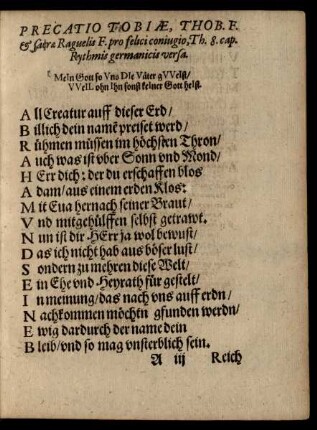 PRECATIO TOBIÆ, THOB. F.
& Saræ Raguelis F. pro felici coniugio, Th. 8. cap.
Rythmis germanicis versa.
MeIn Gott so Vns DIe Väter gVVeIst/
VVeIL ohn Ihn sonst keIner Gott heIst.
All Creatur auff dieser Erd/
Billich dein namē preiset werd/
Rühmen müssen im höchsten Thron/
Auch was ist vber Sonn vnd Mond/
HErr dich: der du erschaffen blos
Adam/ aus einem erden Klos:
Mit Eua hernach seiner Braut/
Vnd mitgehülffen selbst getrawt.
Nun ist dir HErr ja wol bewust/
Das ich nicht hab aus böser lust/
Sondern zu mehren diese Welt/
Ein Ehe vnd Heyrath für gestelt/
In meinung/ das nach vns auff erdn/
Nachkommen möchtn gfunden werdn/
Ewig dardurch der name dein
Bleib/ vnd so mag vnsterblich sein.
A iij Reich